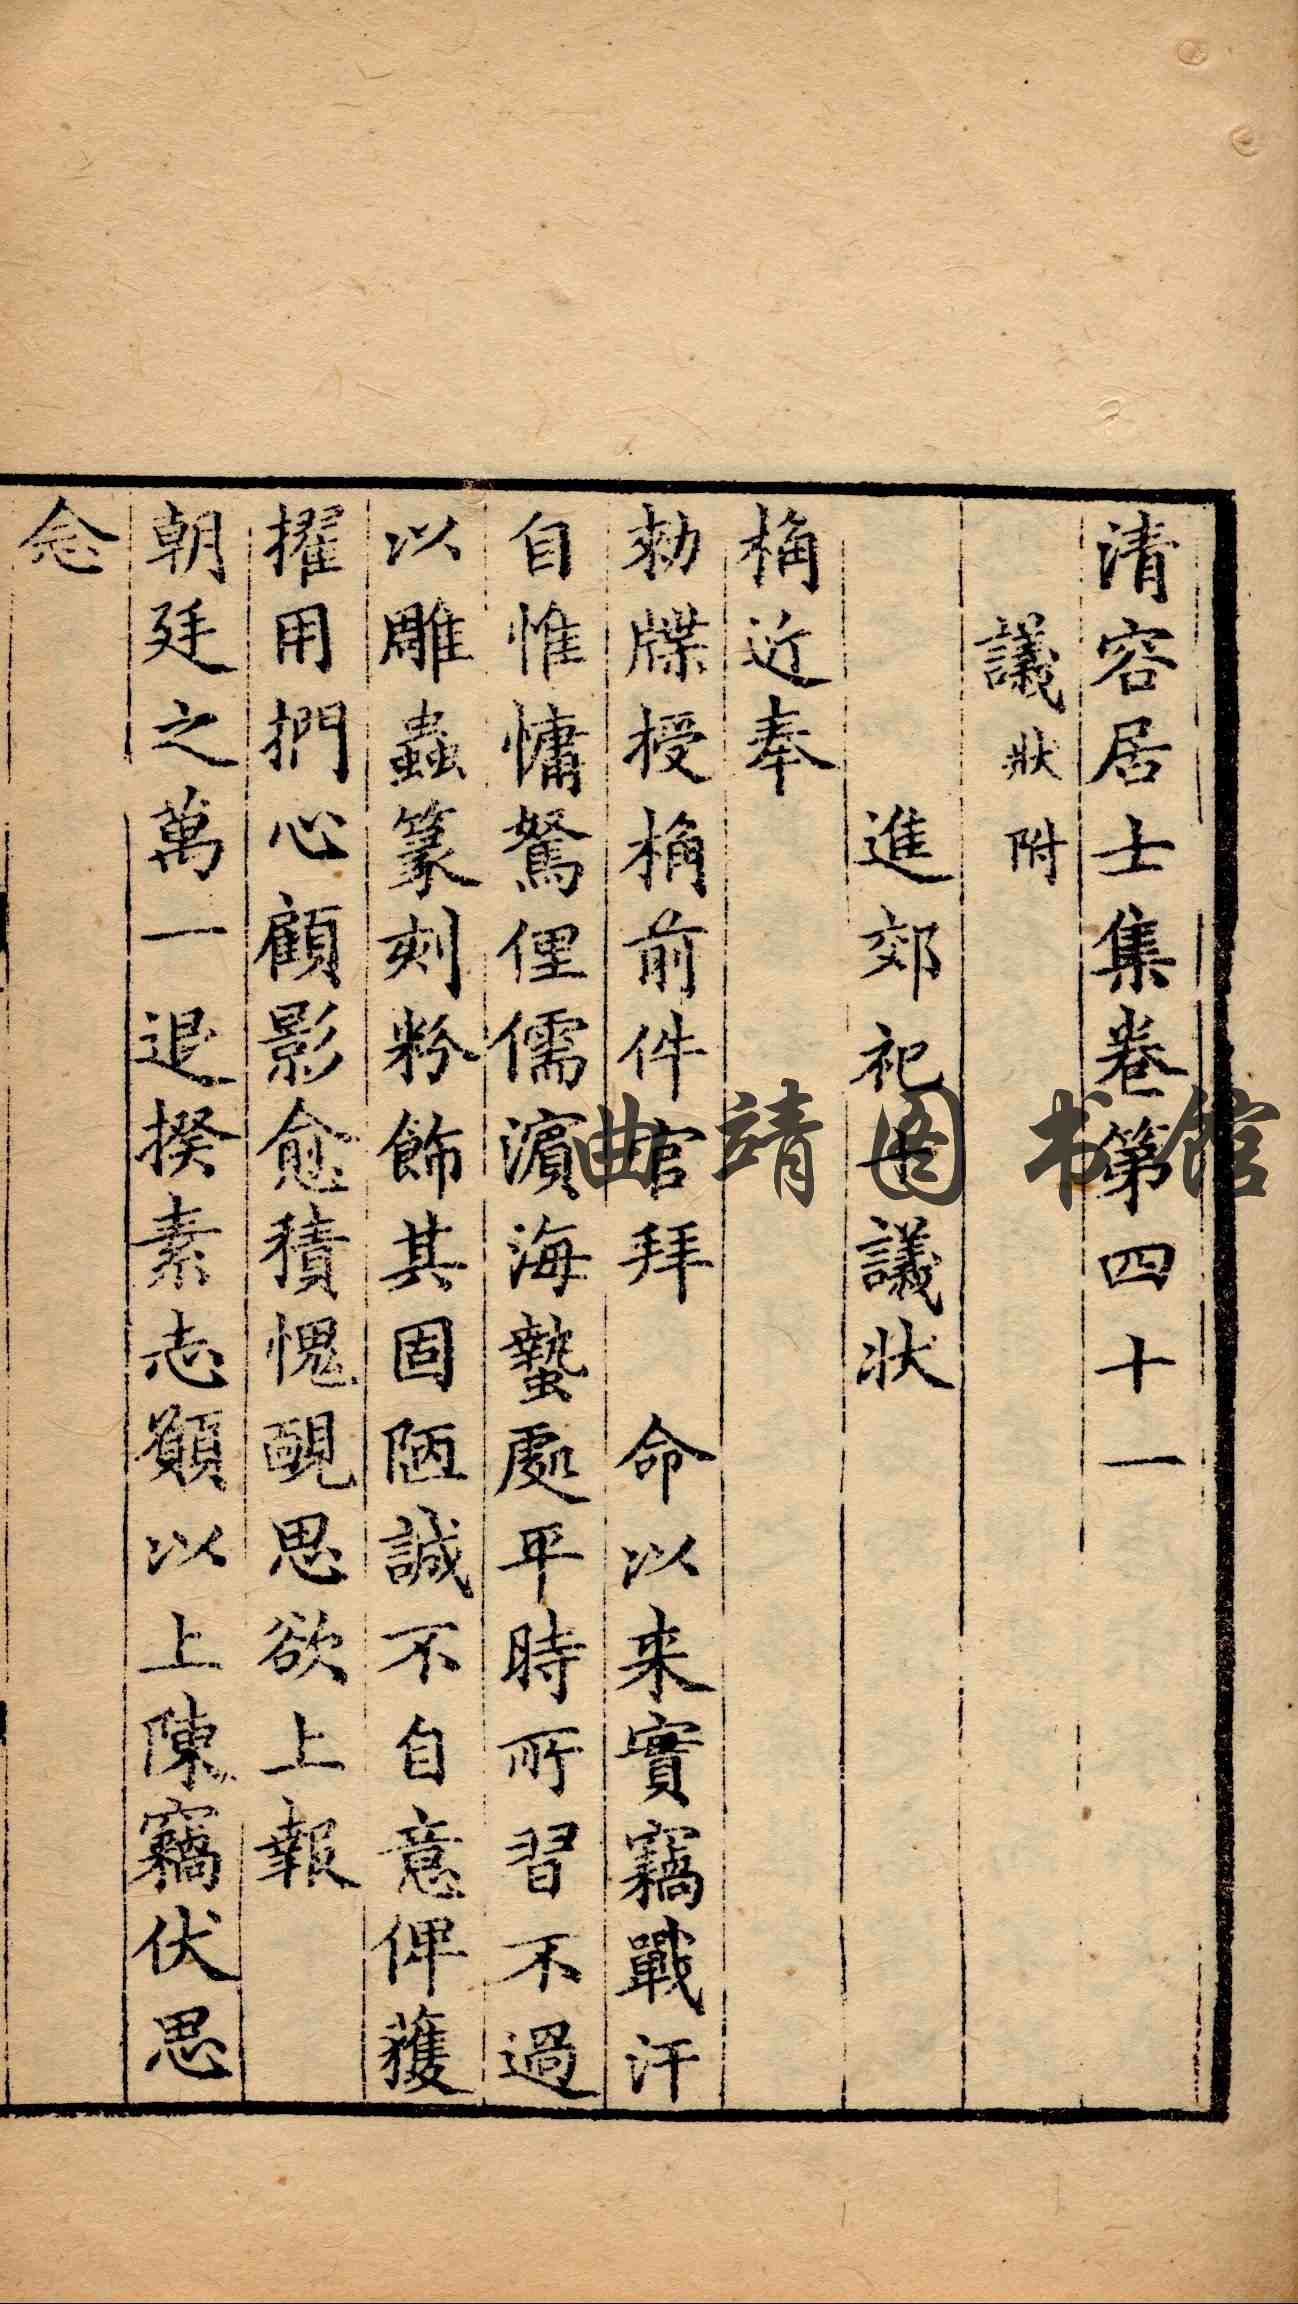 清容居士集卷第四十一
議狀附
進郊祀十議狀
桷近奉
勑牒授桷前件官拜　命以来實竊戰汗
自惟慵駑俚儒濵海蟄處平時所習不過
以雕蟲篆刻粉飾其固陋誠不自意俾獲
擢用捫心顧影愈積愧靦思欲上報
朝廷之萬一退揆素志願以上陳竊伏思
念
曲靖图书馆